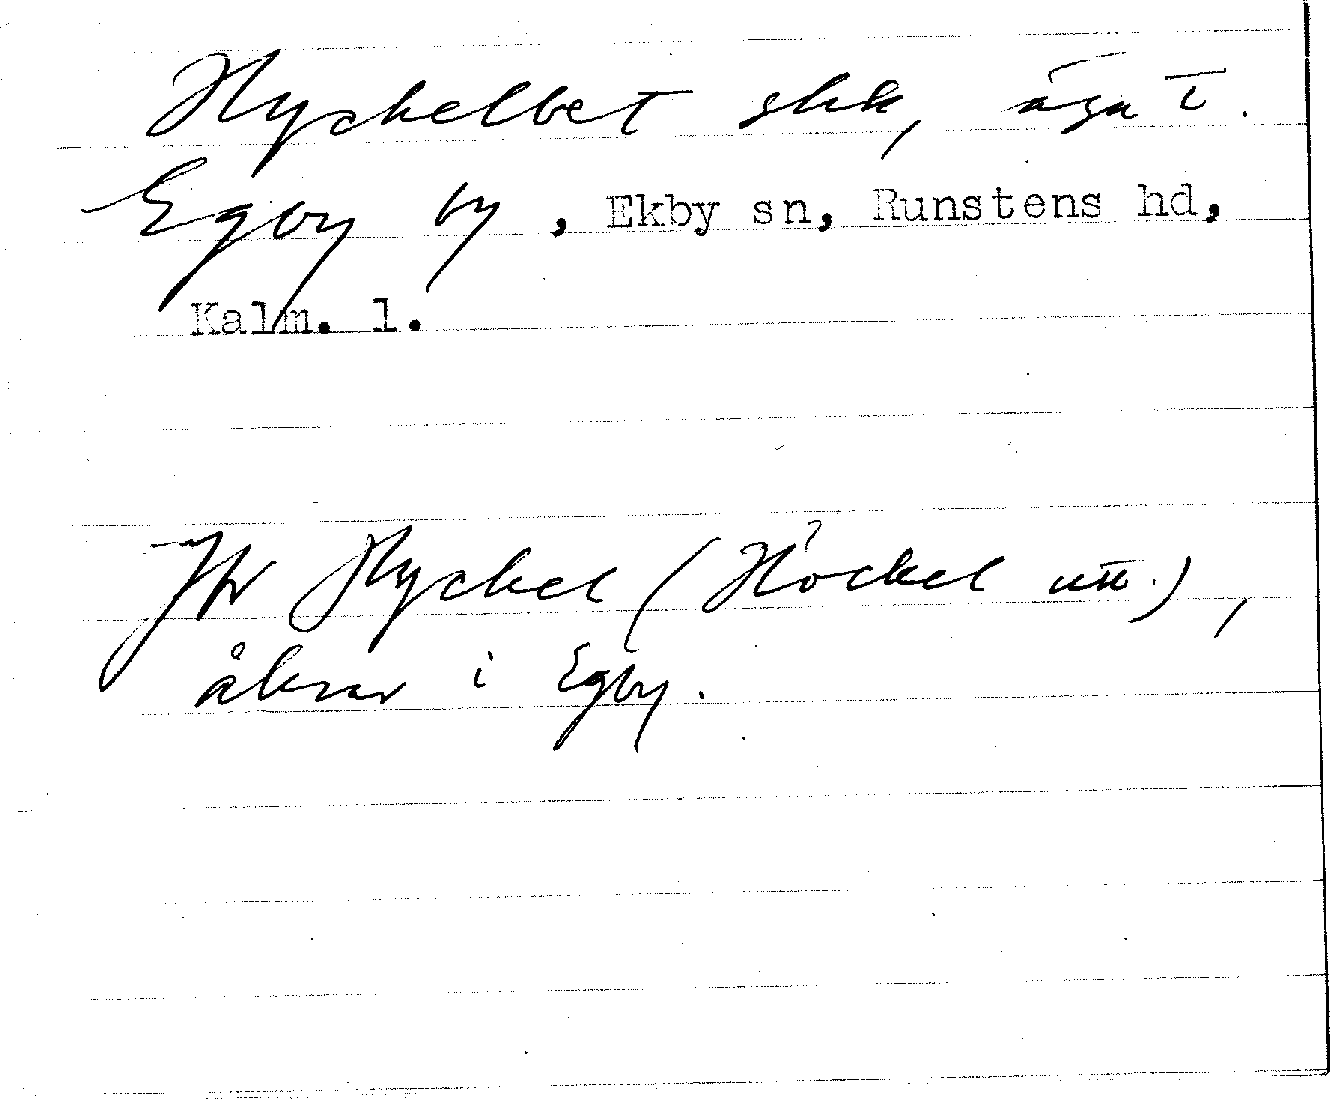 Hyckelbet skk, äga t.
Egby by, Ekby sn, Runstens hd,
Kalm. l.
Jfr Hyckel (Höckel utt.),
åkrar i Egby.